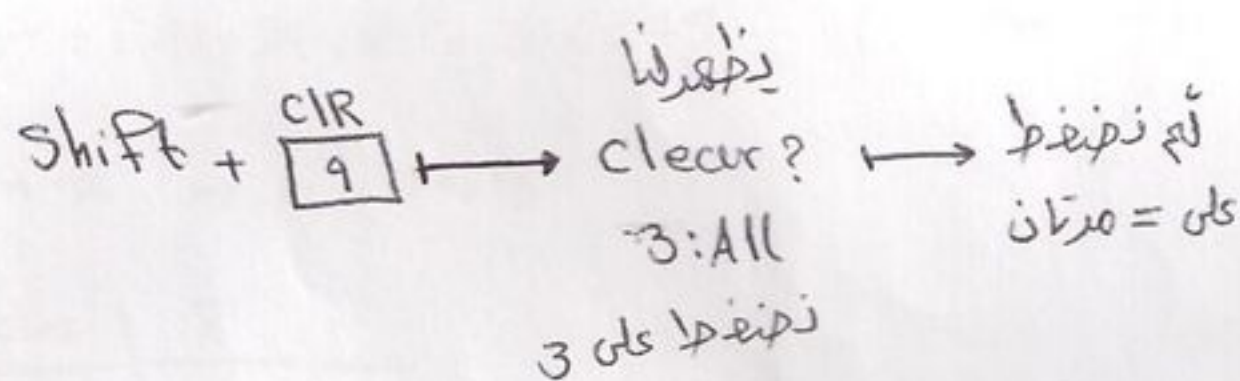 Shift +
ClR
9
يظهر لنا
Clear?
3:All
نضغط على 3
ثم نضغط
على = مرتان